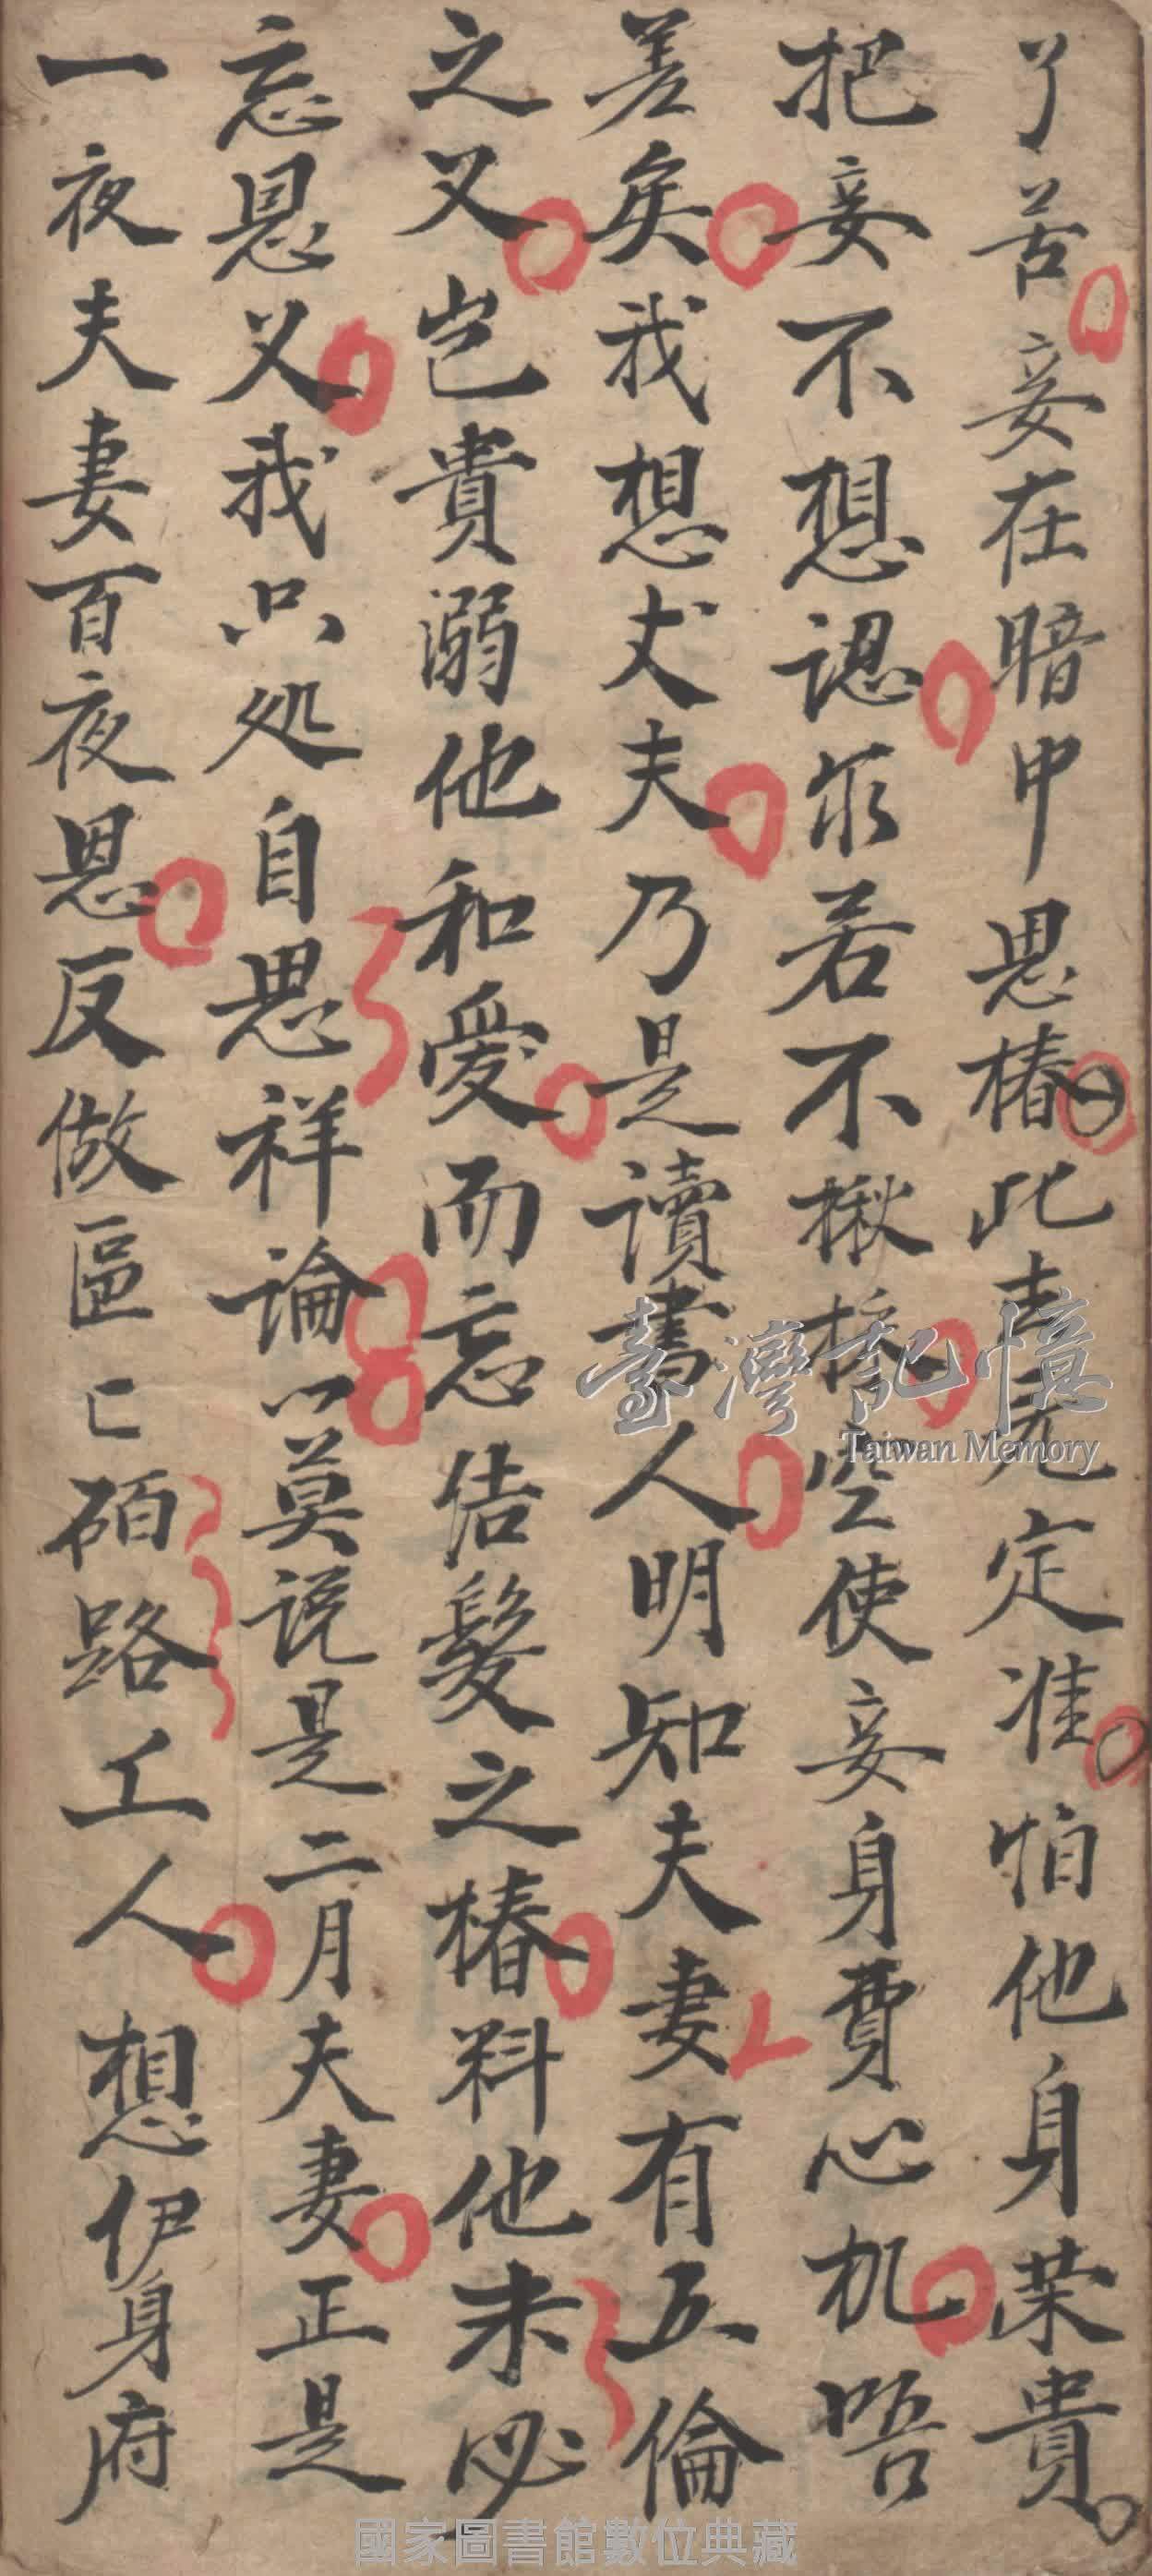 了苦妾在暗中思樁此去元定准怕他身荣貴
把妾不想認尔若不揪採空使妾身費心机唔
差矣我想丈夫乃是讀書人明知夫妻有五倫
之义岂貴溺他和愛而忘佸髮之樁料他未必
忘恩义我只处自思祥論以莫説是二月夫妻正是
一夜夫妻百夜恩反做區匸硧路工人想伊身府
臺灣記憶
Taiwan Memory
國家圖書館數位典藏